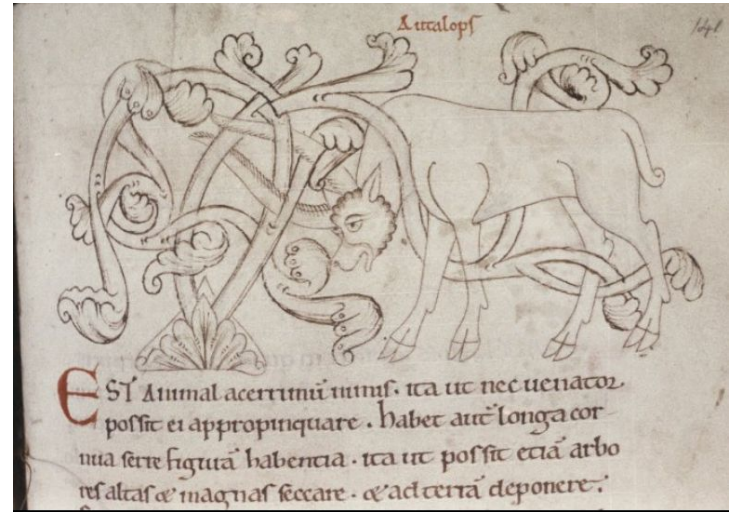 Autalops
EST Animal acerrimũ nimis. ita ut nec uenator.
possit ei appropinquare. habet aut̃ longa cor
nua serre figurã habentia. ita ut possit etiã arbo
res altas & magnas seccare. & ad terrã deponere.